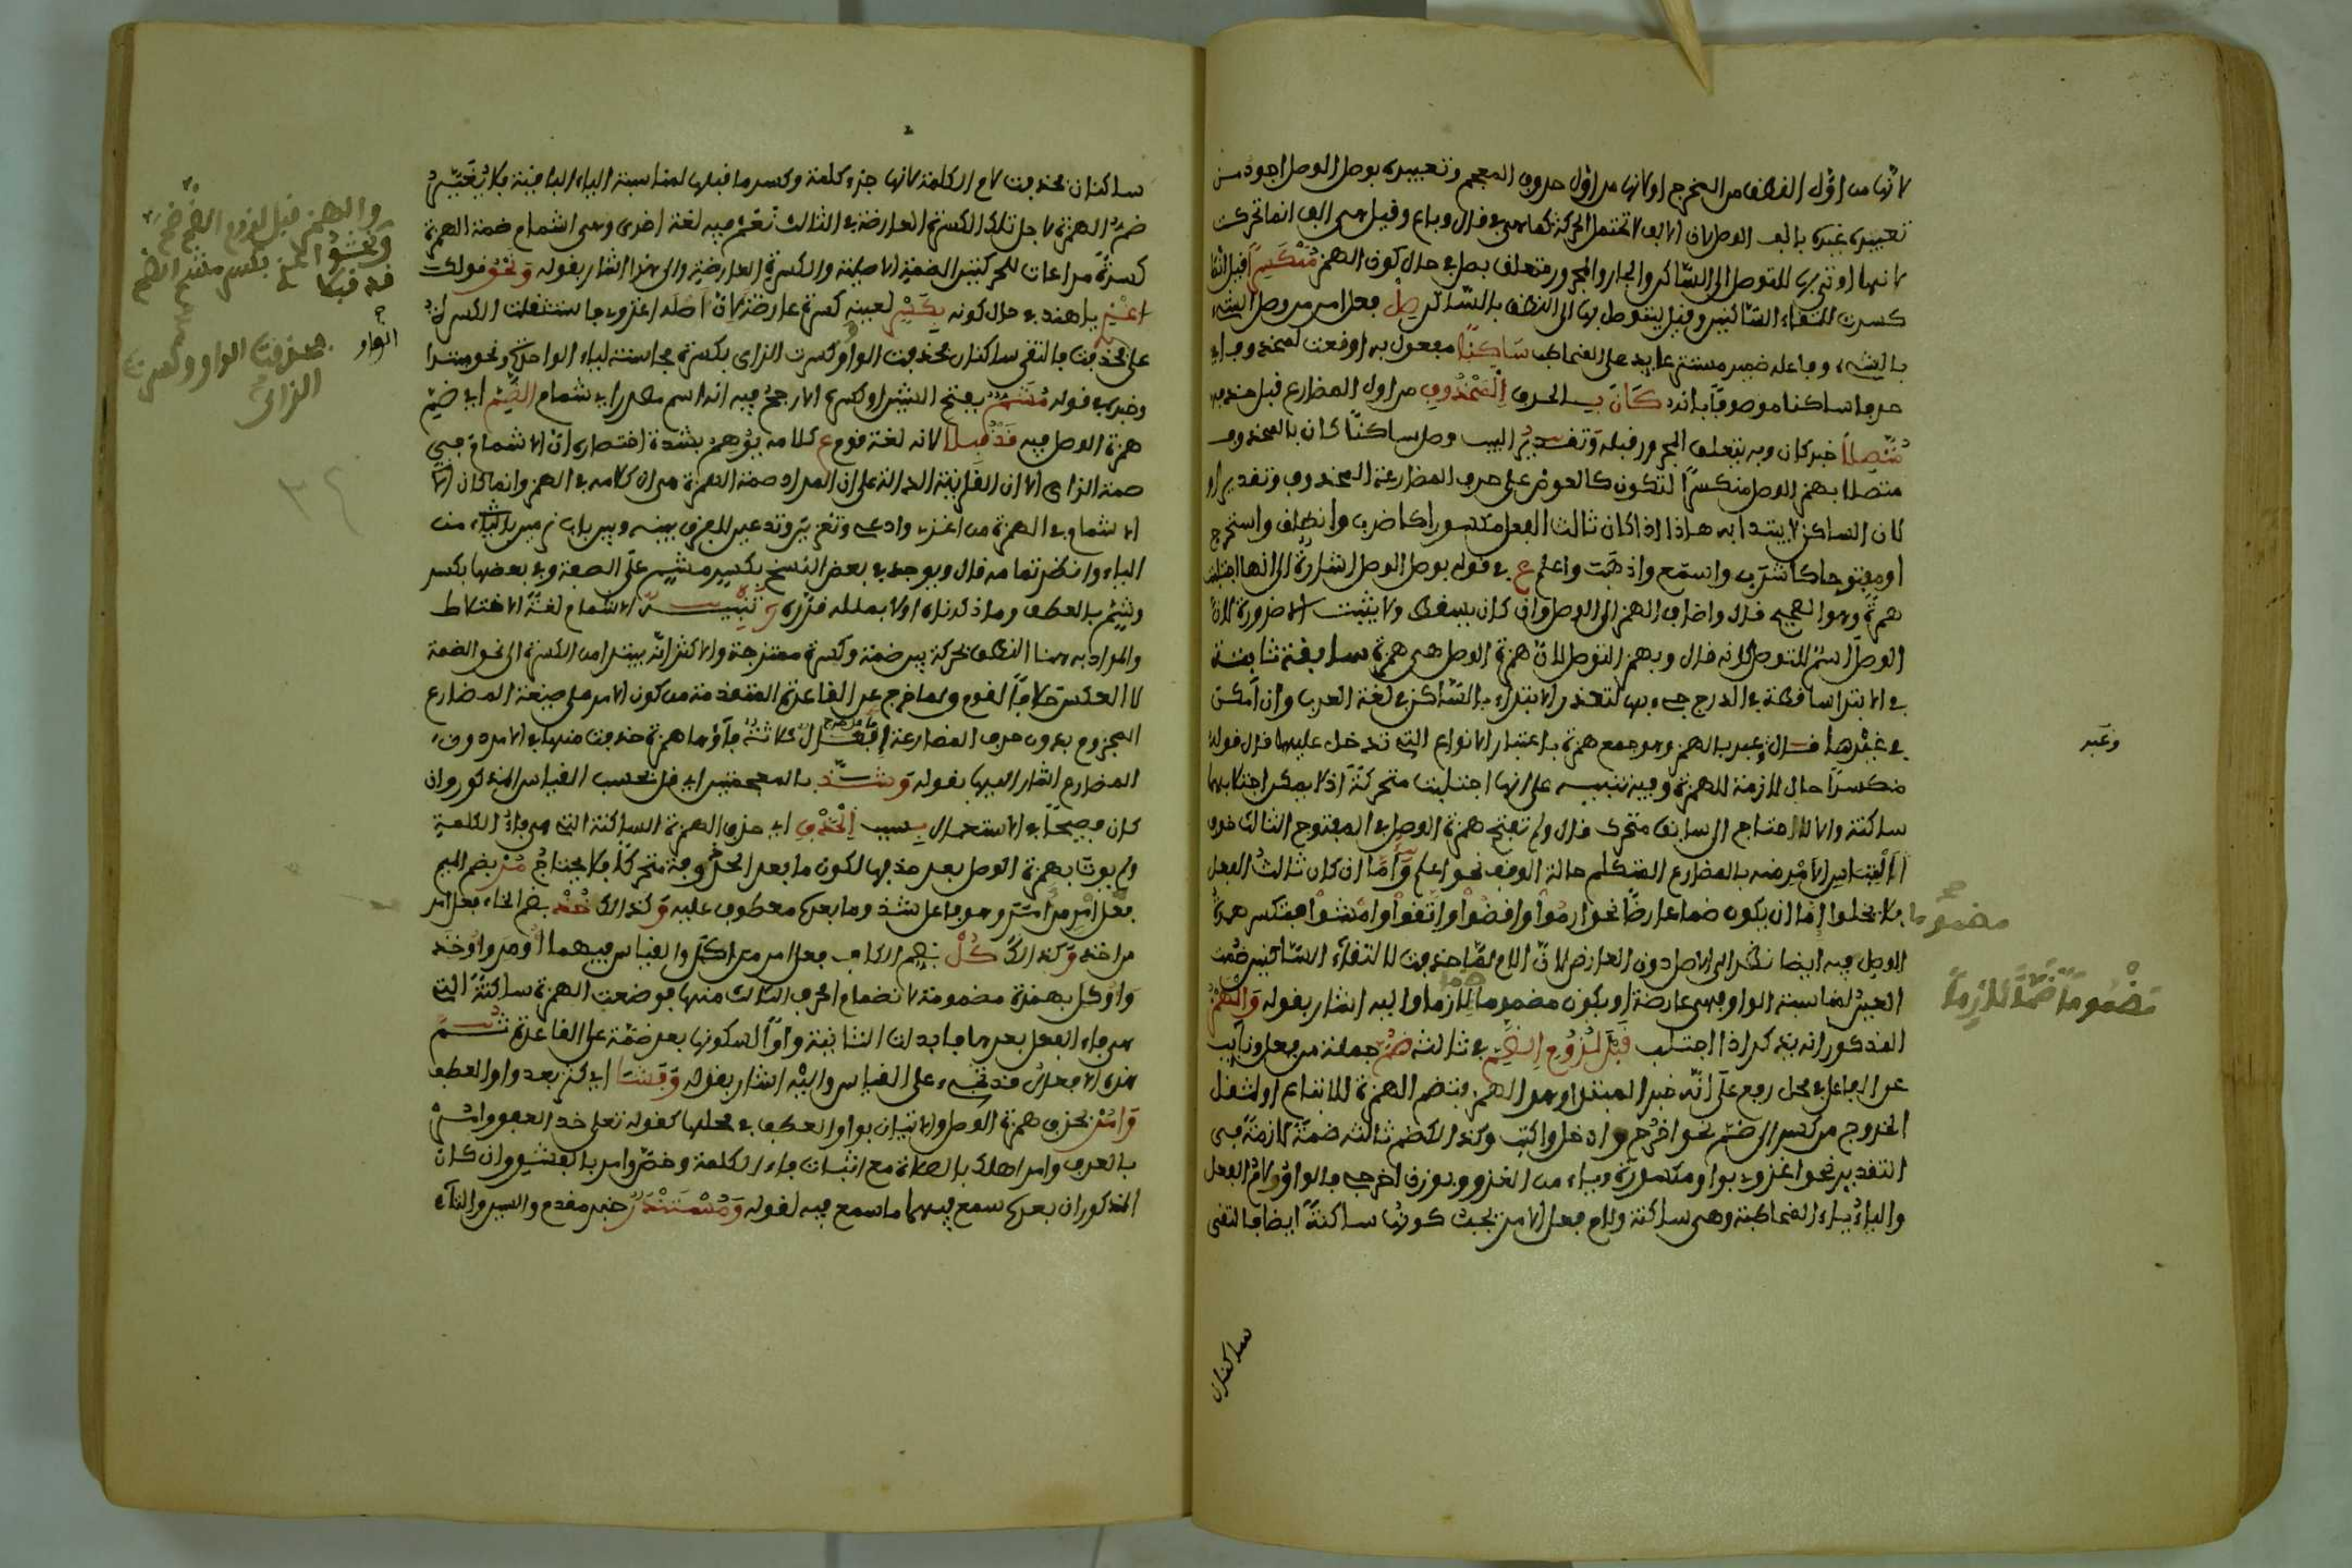 لانها من اول النطق من المخرج او لانها من اول حروف المعجم وتعبيره بوصل الوصل اجود من
تعبيره غيره بالف الوصل لان الالف لا تحتمل الحركة كما هي في قال وباع وقيل هي الف انما تحركت
لانها اوتي بها للتوصل الى الساكن والجار والمجرور متعلق بصل في حال كون الهمز مُنْكَسِرًا قيل انما
كسرت لالتقاء الساكنين وقيل ليتوصل بها الى النطق بالساكن صِلْ فعل امر من وصل الشيء
بالشيء وفاعله ضمير مستتر عايد على المخاطب سَاكِنًا مفعول به اوقعت لمحذوف اي
حرفا ساكنا موصوفا بانه كَانَ بـ الحرف الْمَحْذُوفِ من اول المضارع قبل حذفه
مُتَّصِلًا خبر كان وبه يتعلق المجرور قبله وتقدير البيت وصل ساكنا كان بالمحذوف
متصلا بهمز الوصل منكسرا لتكون كالعوض على حرف المضارعة المحذوف وتقديرا
لان الساكن لا يبتدا به هاذا اذا كان ثالث الفعل مكسورا كاضرب وانطلق واستخرج
او مفتوحا كاشرب واستمع واذهب واعلم ع في قوله بوصل الوصل اشارة الى انها اجتلبت
همزة وهو الصحيح قال واضاف الهمز الى الوصل وان كان يسقط ولا يثبت الا ضرورة لان
الوصل اسم للتوصل لانه قال وبهمز التوصل لان همزة الوصل هي همزة سابقة ثابتة
في الابتدا ساقطة في الدرج جيء بها لتعذر الابتداء بالساكن في لغة العرب وان امكن
في غيرها قال وعبر بالهمز وهو جمع همزة باعتبار الانواع التي تدخل عليها قال قوله
وعَبر
منكسرا حال لازمة للهمزة وفيه تنبيه على انها اجتلبت متحركة اذ لا يمكن اجتلابها
ساكنة والا لاحتاج الى سابق متحرك قال ولم تفتح همزة الوصل في المفتوح الثالث خوف
التباس الامر منه بالمضارع المتكلم حالة الوقف نحو اعلم وَأَمَّا ان كان ثالث الفعل
مضموما فلا يخلوا اما ان يكون ضما عارضا نحو ارموا واقضوا واتقوا وامشوا فتكسر همزة
الوصل فيه ايضا نظرا الى الاصل دون العارض لان اللام لما حذفت لالتقاء الساكنين ضمت
العين لمناسبة الواو فهي عارضة او يكون مضموما لازما واليه اشار بقوله وَالْهَمْزُ
مَضْمُومًا ضَمًّا لَازِمًا
المذكور انه بتذكر اذا اجتلب قَبْلَ لُزُومِ الضَّمِّ في ثالثه ضُمَّ جملة من فعل ونايب
عن الفاعل في محل رفع على انه خبر المبتدا وهو الهمز فتضم الهمزة للاتباع او لثقل
الخروج من كسر الى ضم نحو اخرج وادخل واكتب وكذا اذا ضم ثالثه ضمة لازمة في
التقدير نحو اغزوي بواو مكسورة وياء من الغزو وبوزن اخرجي فالواو لام الفعل
والياء ياء المخاطبة وهي ساكنة ولام فعل الامر بحيث كونها ساكنة ايضا فالتقى
ساكنان
ساكنان فحذفت لام الكلمة لانها جزء كلمة وكسر ما قبلها لمناسبة الياء الباقية فلا يُغَيِّرُ
ضم الهمزة لاجل تلك الكسرة العارضة في الثالث نعم فيه لغة اخرى وهي اشمام ضمة الهمزة
كسرة مراعات للحركتين الضمة الاصلية والكسرة العارضة والى هذا اشار بقوله وَنَحْوُ قولك
اغْزِي يا هند في حال كونه بِكَسْرٍ لعينه كسرة عارضة لان اصله اغزوي فاستثقلت الكسرة
على فحذفت فالتقى ساكنان فحذفت الواو وكسرت الزاي بكسرة مجانسة لياء الواحدة ونحو مبتدا
وخبره في قوله مُشَمّ بفتح الشين او كسرها الارجح فيه انه اسم مصدر اي شمام الضَّمِّ اي ضم
همزة الوصل فيه قَدْ قُبِلَا لانه لغة قوم ع كلامه يوهم بشدة اختصاره ان الاشمام في
ضمة الزاي الا ان القرينة الدالة على ان المراد ضمة الهمزة هي ان كلامه في الهمز وانما كان
الاشمام في الهمزة من اغزي وادعي وتغزين وتدعين للفرق بينه وبين باب ترمين بالياء من
الياء وانظر تمامه قال ويوجد في بعض النسخ بكسر مشم على الصفة وفي بعضها بكسر
ويشم بالعطف وما ذكرناه اولا بمثله قرره تَنْبِيه الاشمام لغة الاختلاط
والمراد به هنا النطق بحركة بين ضمة وكسرة ممتزجة والاكثر انه يبتدا من الكسرة الى نحو الضمة
لا العكس خلافا لقوم ولما خرج عن القاعدة المتقدمة من كون الامر على صيغة المضارع
المجزوم بدون حرف المضارعة افعال ثلاثة فاؤها همزة حذفت منها في الامر دون
المضارع اشار اليها بقوله وَشَذَّ بالمعجمتين اي قل بحسب القياس المذكور وان
كان فصيحا في الاستعمال بسبب الْحَذْفِ اي حذف الهمزة الساكنة التي هي فاء الكلمة
ولم يوت بهمزة الوصل بعد حذفها لكون ما بعد المحذوفة متحركا فلا يحتاج مُرْ بضم الميم
فعل امر من امر وهو فاعل شذ وما بعدها معطوف عليه وَكذاك خُذْ بضم الخاء فعل امر
من اخذ وَكذاك كُلْ بضم الكاف فعل امر من اكل والقياس فيهما اومر واوخذ
واوكل بهمزة مضمومة لانضمام الحرف الثالث منها فوضعت الهمزة ساكنة التي
هي فاء الفعل بعدها فابدلت الثانية واوا لسكونها بعد ضمة على القاعدة ثُمَّ
هذه الافعال قد تجيء على القياس واليه اشار بقوله وَفَشَا اي كثر بعد واو العطف
وَامُرْ بحذف همزة الوصل والاتيان بواو العطف في محلها كقوله تعلى خذ العفو وامر
بالعرف وامر اهلك بالصلاة مع اثبات فاء الكلمة وخص وامر بالفشو وان كان
المذكوران بعدها سمع فيهما ما سمع فيه لقوله وَمُسْتَنْدَرٌ خبر مقدم والسين والتاء
والهمز قبل لزوم الضم ضم
ونحو اغزي بكسر مشم الضم
قد قبلا
الواو
فحذفت الواو وكسرت
الزاي